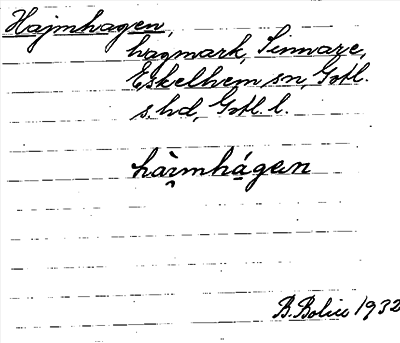 Hajmhagen,
hagmark, Simnare,
Eskelhem sn, Gotl.
s. hd, Gotl. l.
hàimhágen
B. Bolin 1932